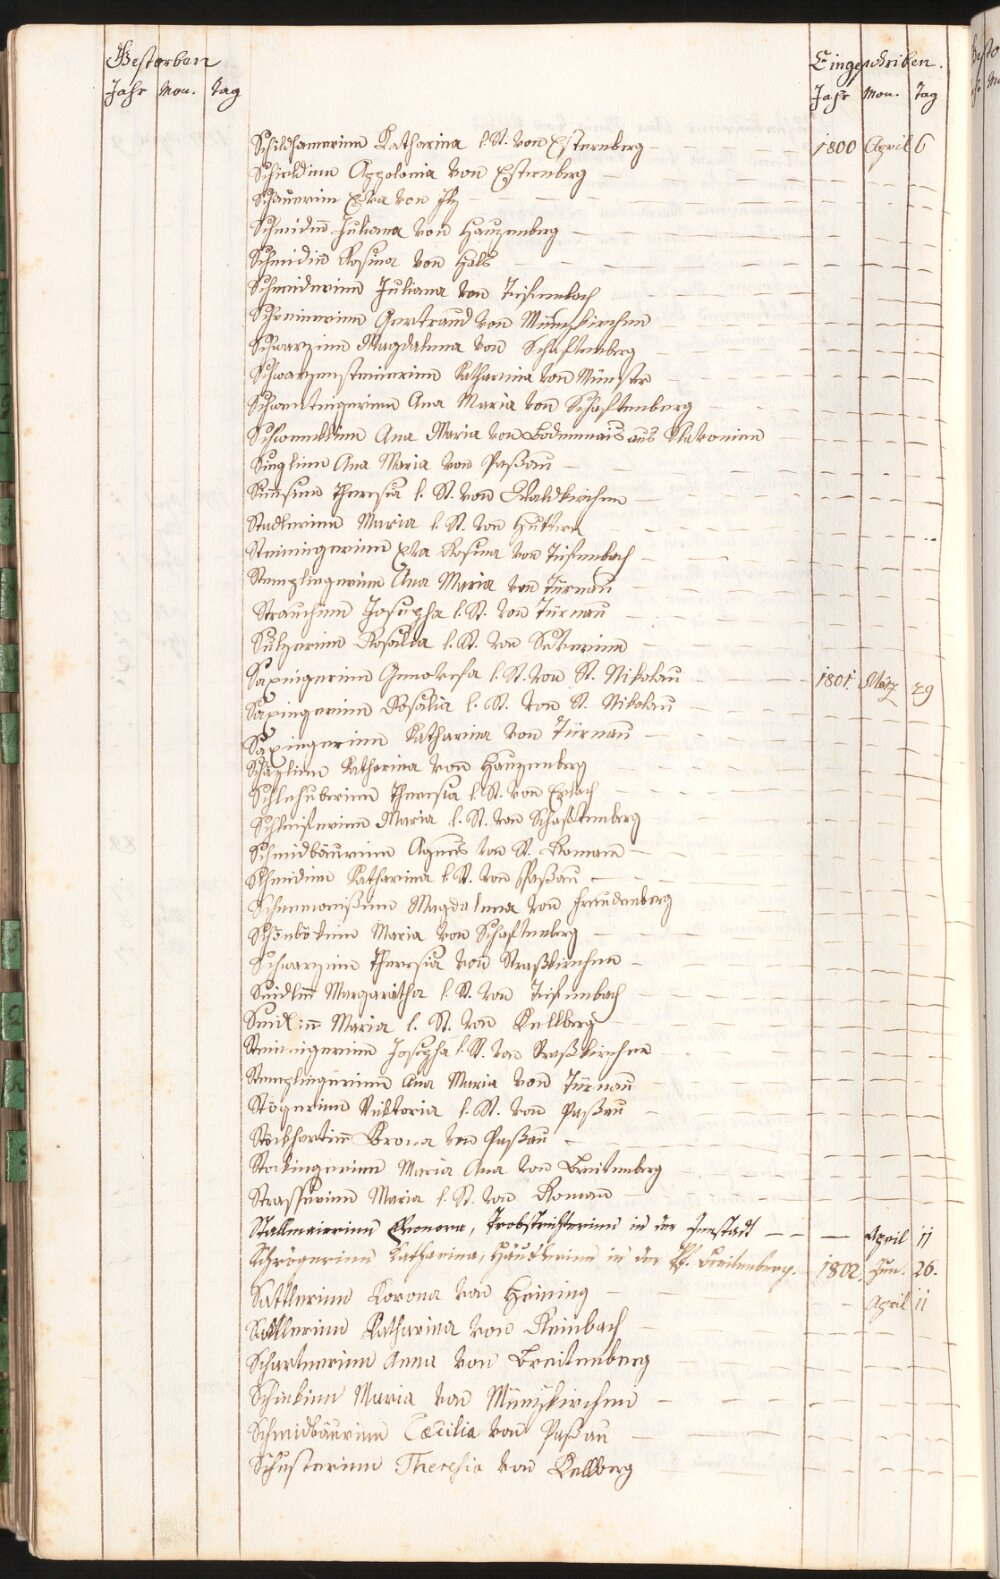 Gestorben
Eingeschriben.
Jahr Mon. Tag
Jahr Mon. Tag
Schildhamerinn Katharina l. St. von Esternberg 1800 April 6
Schieldinn Appolonia von Esternberg
Schauerinn Eva von Ilz
Schmidin Juliana von Hauzenberg
Schmidin Rosina von Hals
Schneiderinn Juliana von Tiefenbach
Schreinerinn Gertraud von Münzkirchen
Schwarzinn Magdalena von Schaftenberg
Schwarzensteinerinn Katharina von Münster
Schwentingerinn Ana Maria von Schaftenberg
Ana Maria von Bodenmais aus
Singlinn Ana Maria von Paßau
Theresia l. St. von Waldkirchen
Stadlerinn Maria l. St. von Huttern
Steiningerinn Eva Rosina von Tiefenbach
Stemplingerinn Ana Maria von Türnau
Strauchinn Josepha l. St. von Türnau
Sulzerinn Rosalia l. St. von
Saxingerinn Genovefa l. St. von St. Nikolau 1801 März 29
Saxingerinn Rosalia l. St. von St. Nikolau
Saxingerinn Katharina von Türnau
Schäzlinn Katharina von Hauzenberg
Schlehuberinn Theresia l. St. von
Schleiferinn Maria l. St. von Schaftenberg
Schmidbäurinn Agnes von St. Roman
Schmidinn Katharina l. St. von Paßau
Magdalena von Freudenberg
Schönbökinn Maria von Schaftenberg
Schwarzinn Theresia von Straßkirchen
Seidlinn Margaratha l. St. von Tiefenbach
Seidlinn Maria l. St. von Kellberg
Steiningerinn Josepha l. St. von Straßkirchen
Stemplingerinn Ana Maria von Türnau
Stögerinn Viktoria l. St. von Paßau
Stökhartinn Crona von Paßau
Stokingerinn Maria Ana von Breitenberg
Strasserinn Maria l. St. von Roman
Stallmeierinn Eleonora, in der Innstadt April 11
Schrögerinn Katharina, Häuslerinn in der Pf. Breitenberg. 1802. Jun. 26.
Sattlerinn Korona von Heining April 11
Sattlerinn Katharina von Reinbach
Schartnerinn Anna von Breitenberg
Schinkinn Maria von Münzkirchen
Schmidbäurinn Cæcilia von Paßau
Schusterinn Theresia von Kellberg